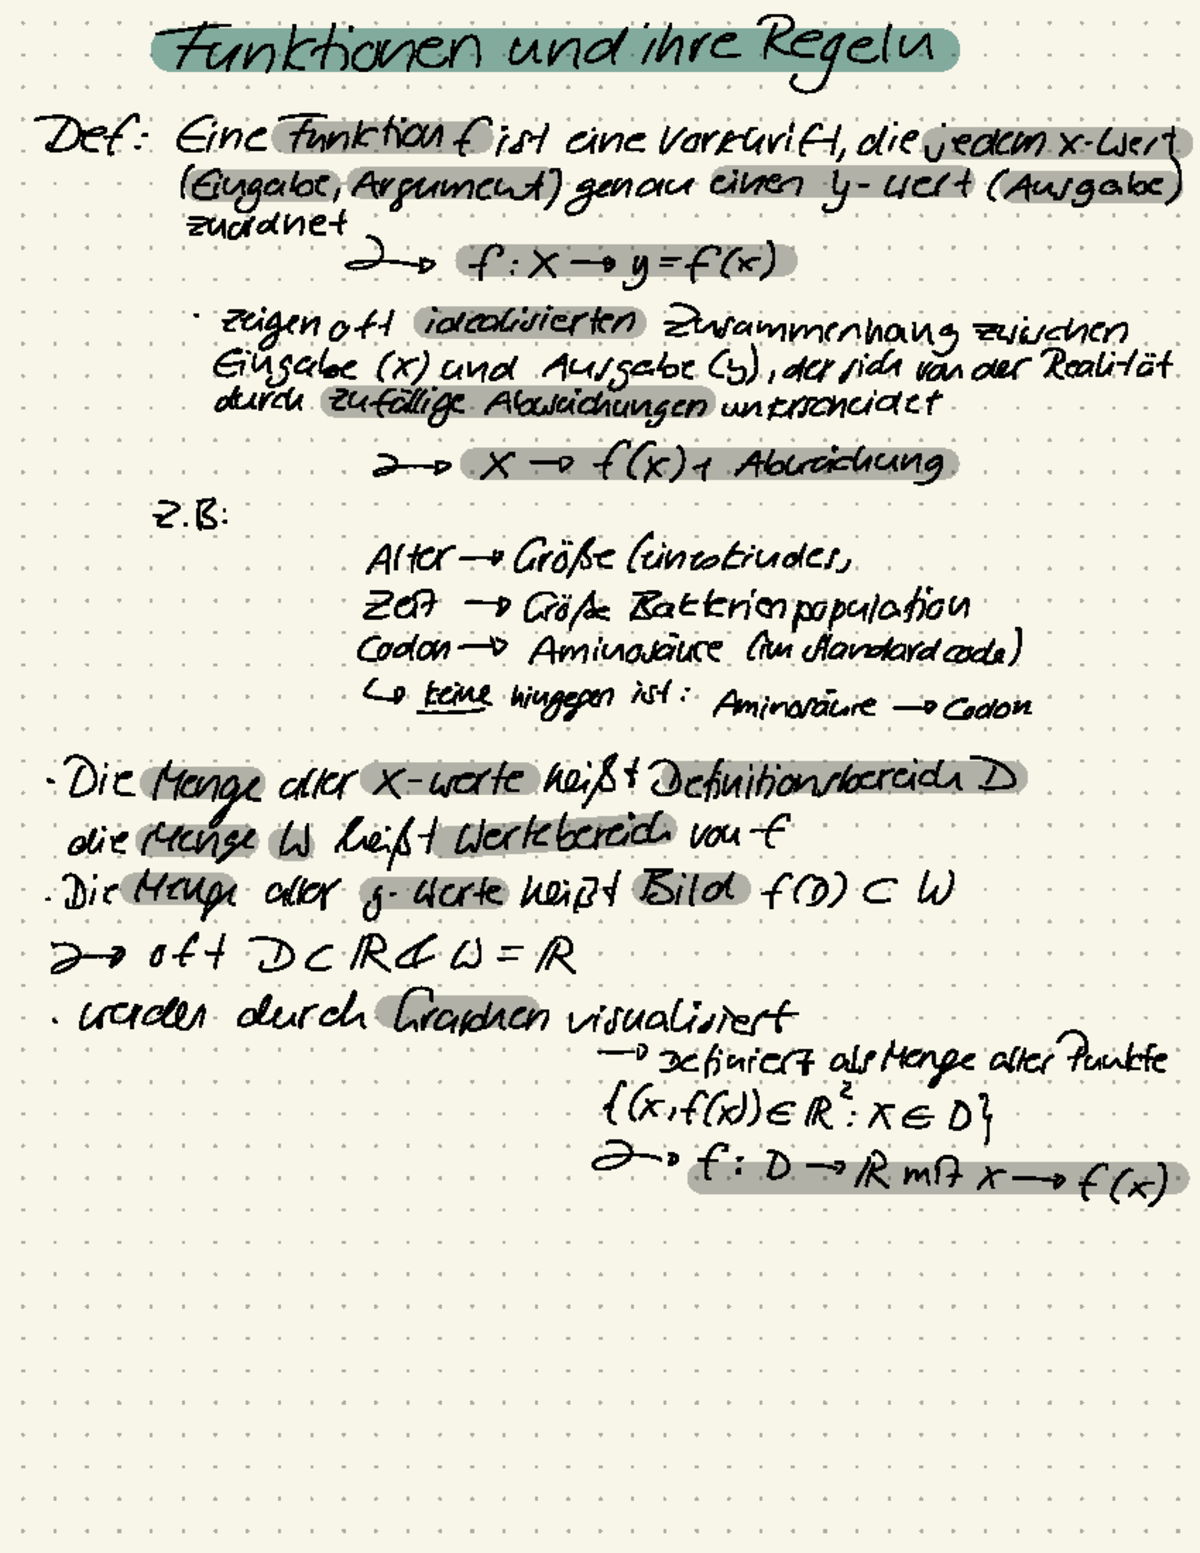 Funktionen und ihre Regeln
Def: Eine Funktion f ist eine Vorschrift, die jedem x-Wert
(Eingabe, Argument) genau einen y-Wert (Ausgabe)
zuordnet
→ f: X → y = f(x)
· zeigen oft idealisierten Zusammenhang zwischen
Eingabe (x) und Ausgabe (y), der sich von der Realität
durch zufällige Abweichungen unterscheidet
→ X → f(x) + Abweichung
Z.B:
Alter → Größe (eines Kindes)
Zeit → Größe Bakterienpopulation
Codon → Aminosäure (im Standardcode)
↳ keine hingegen ist: Aminosäure → Codon
· Die Menge aller X-werte heißt Definitionsbereich D
die Menge W heißt Wertebereich von f
· Die Menge aller y-Werte heißt Bild f(D) ⊂ W
→ oft D ⊂ ℝ & W = ℝ
· werden durch Graphen visualisiert
→ Definiert als Menge aller Punkte
{(x, f(x)) ∈ ℝ²: x ∈ D}
→ f: D → ℝ mit x → f(x)